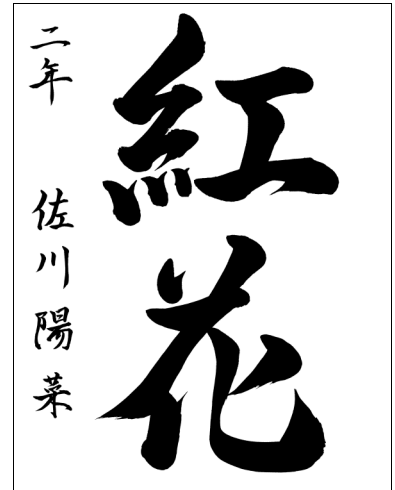 紅花
二年 佐川陽菜